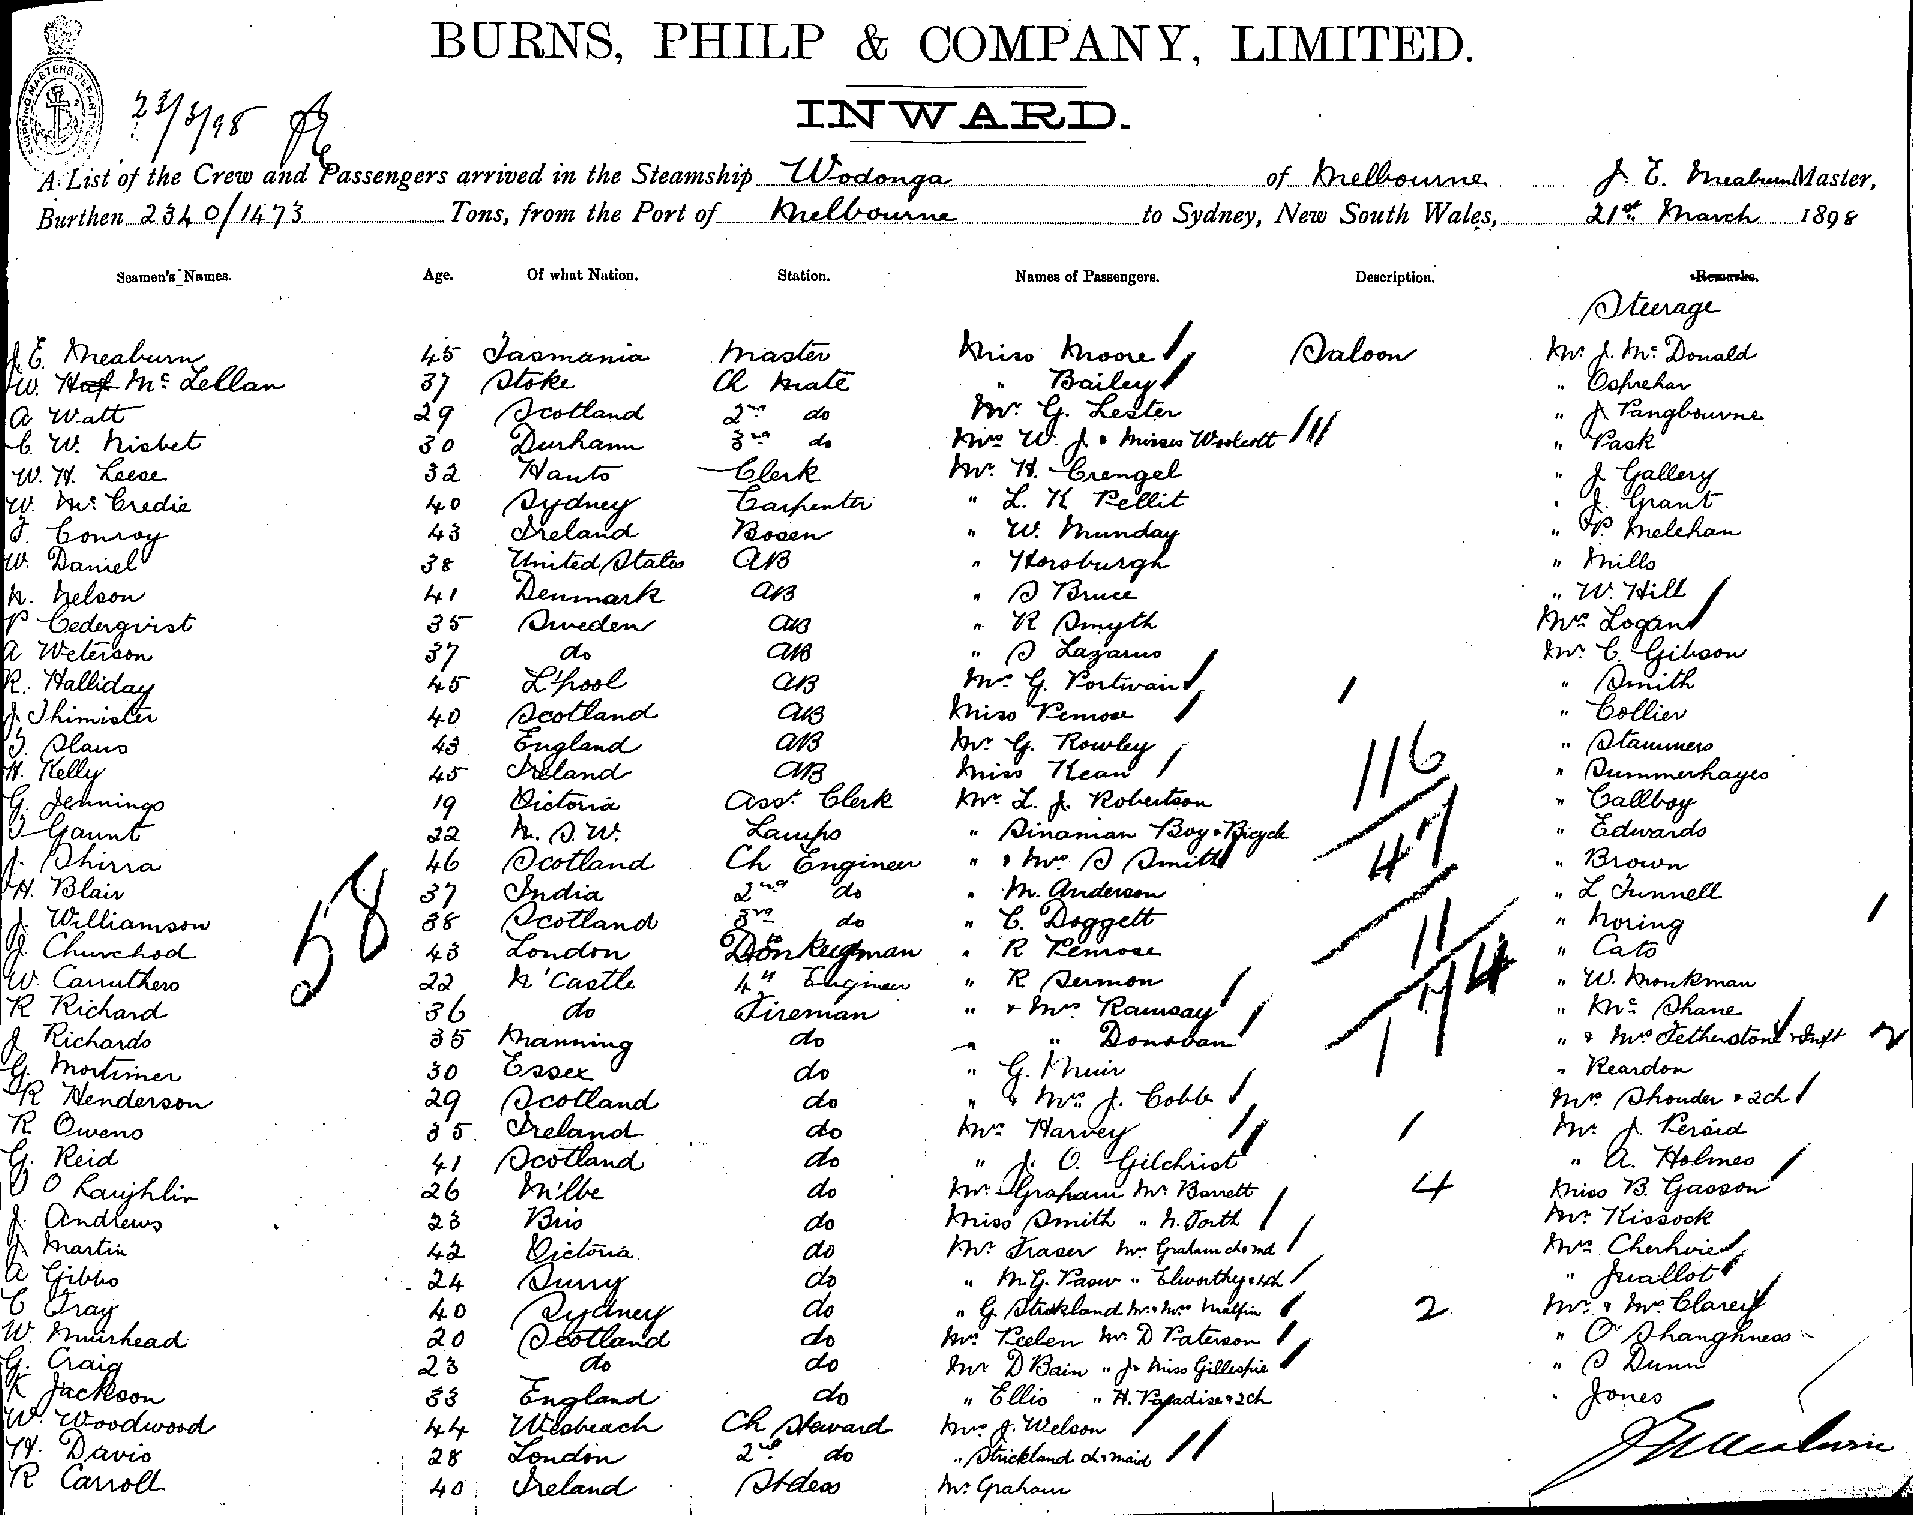 BURNS, PHILP & COMPANY, LIMITED.
INWARD.
23/3/98
A List of the Crew and Passengers arrived in the Steamship Wodonga of Melbourne J. E. Meaburn Master,
Burthen 2340/1473 Tons, from the Port of Melbourne to Sydney, New South Wales, 21st March 1898
Seamen's Names. Age. Of what Nation. Station. Names of Passengers. Description. Remarks.
Steerage
J. E. Meaburn 45 Tasmania Master Miss Moore Saloon Mr J. Mc Donald
W. Mc Lellan 37 Stoke Ch Mate " Bailey "
A Watt 29 Scotland 2nd do Mr. G. Lester " J Pangbourne
C W. Nisbet 30 Durham 3rd do Mrs W. J. & Misses Woolcott " Pask
W. H. Leese 32 Hants Clerk Mr. H. Crengel " J Gallery
W. Mc Credie 40 Sydney Carpenter " L. K Pellit " J. Grant
T. Conroy 43 Ireland Bosen " W. Munday " P. Melehan
W. Daniel 38 United States AB " Horsburgh " Mills
N. Nelson 41 Denmark AB " S Bruce " W. Hill
P Cedergvist 35 Sweden AB " R Smyth Mrs Logan
A Weterson 37 do AB " S Lazarus Mr. C. Gibson
R. Halliday 45 L'pool AB Mrs G. Portwain " Smith
J. Thimister 40 Scotland AB Miss Penrose " Collier
T. Slaus 43 England AB Mr. G. Rowley " Stammers
H. Kelly 45 Ireland AB Miss Kean " Summerhayes
G. Jennings 19 Victoria Asst Clerk Mr. L. J. Robertson " Callboy
T Gaunt 22 N. S. W. Lamps " Sinaman Boy & Bicycle " Edwards
J. Shirra 46 Scotland Ch Engineer " & Mrs S Smith " Brown
H. Blair 37 India 2nd do " M. Anderson " L Tunnell
J. Williamson 38 Scotland 3rd do " C. Doggett " Noring
J. Churchod 43 London Donkeyman " R Penrose " Cato
W. Carruthers 22 N'Castle 4th Engineer " R Sermon " W. Monkman
R Richard 36 do Fireman " & Mrs Ramsay " Mc Shane
J Richards 35 Manning do " " Donovan " & Mrs Fetherston & Inft 2
G. Mortimer 30 Essex do " G. Muir " Reardon
R Henderson 29 Scotland do " & Mrs J. Cobb Mrs Shouder & 2ch
R. Owens 35 Ireland do Mrs Harvey Mr J. Peroid
G. Reid 41 Scotland do " J. O. Gilchrist " A. Holmes
O Laughlin 26 M'lbe do Mr. Graham Mr Barrett 4 Miss B. Gasson
J. Andrews 23 Bris do Miss Smith " N. Forth Mr. Kissock
J. Martin 42 Victoria do Mr Fraser Mrs Graham ch & md Mrs
A Gibbs 24 Surry do " M. G. " Elworthy & ch " Juallot
C Gray 40 Sydney do " G Strickland Mr & Mrs Malpin 2 Mr. & Mrs Clarey
W. Muirhead 20 Scotland do Mrs Peelen Mr. D Paterson " O'Shanghness
G. Craig 23 do do Mr D Bain " J & Miss Gillespie " S Dunn
K Jackson 33 England do " Ellis " H. Paradise & 2ch " Jones
W. Woodwood 44 Wesbeach Ch Steward Mrs J. Welson
H. Davis 28 London 2nd do " Strickland ch & maid
R Carroll 40 Ireland Stdess Mr Graham
58
116
47
11
174
1